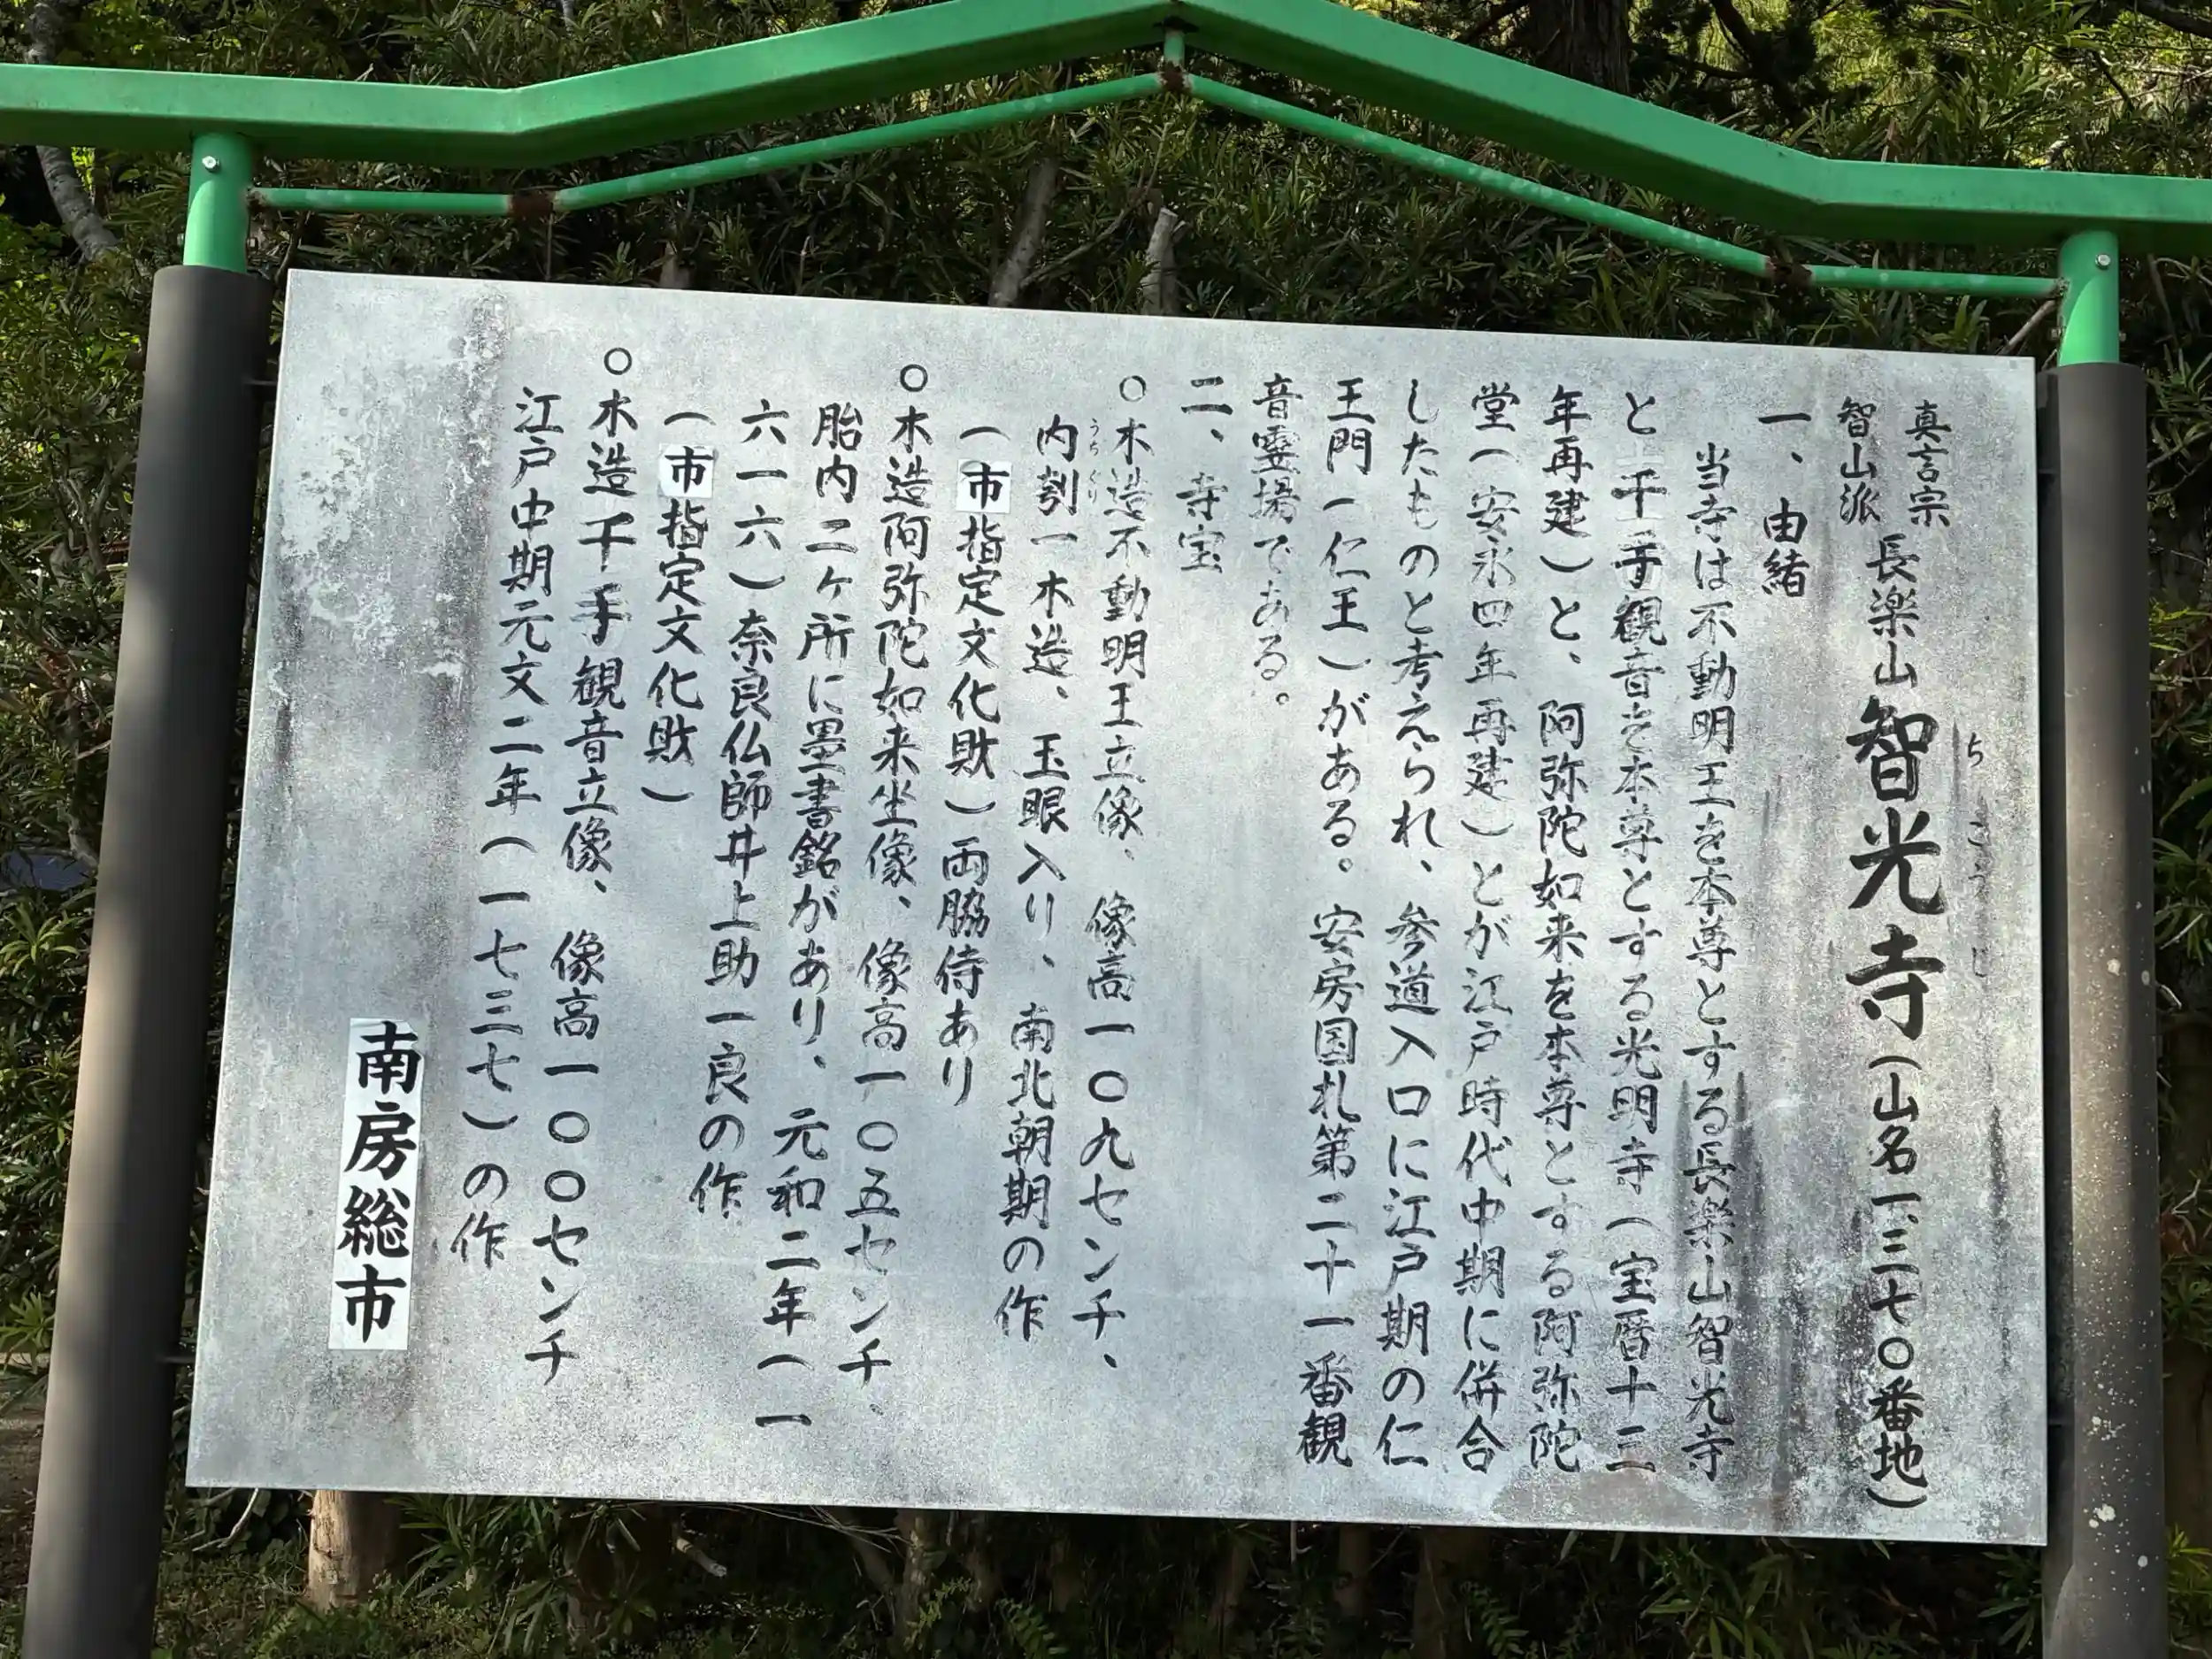 真言宗
智山派
長楽山 智光寺（山名一、三七〇番地）
ちこうじ
一、由緒
当寺は不動明王を本尊とする長楽山智光寺
と千手観音を本尊とする光明寺（宝暦十三
年再建）と、阿弥陀如来を本尊とする阿弥陀
堂（安永四年再建）とが江戸時代中期に併合
したものと考えられ、参道入口に江戸期の仁
王門（仁王）がある。安房国札第二十一番観
音霊場である。
二、寺宝
○木造不動明王立像、像高一〇九センチ、
うちぐり
内刳一木造、玉眼入り、南北朝期の作
（市指定文化財）両脇侍あり
○木造阿弥陀如来坐像、像高一〇五センチ、
胎内二ヶ所に墨書銘があり、元和二年（一
六一六）奈良仏師井上助一良の作
（市指定文化財）
○木造千手観音立像、像高一〇〇センチ
江戸中期元文二年（一七三七）の作
南房総市